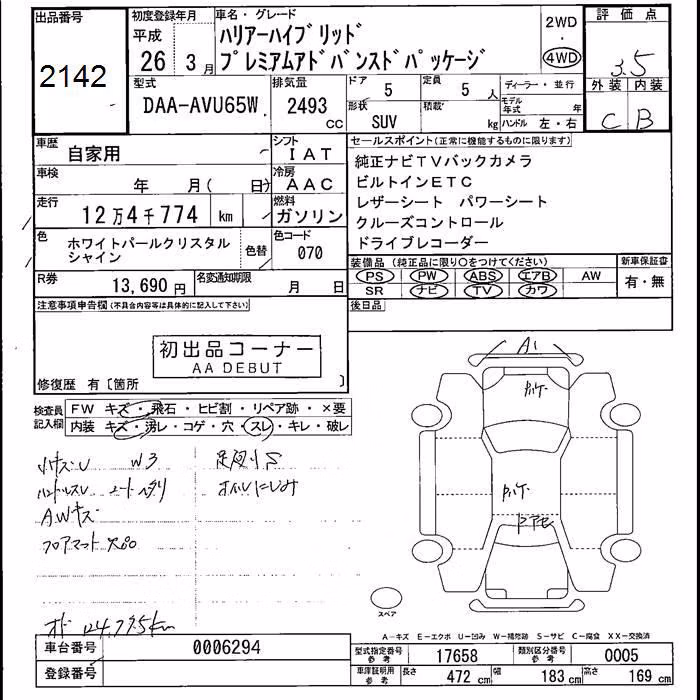 出品番号
2142
初度登録年月
平成
26 3月
車名・グレード
ハリアーハイブリッド
プレミアムアドバンスドパッケージ
2WD
・
4WD
評価点
3.5
外装 内装
C B
型式
DAA-AVU65W
排気量
2493
CC
ドア
5
定員
5 人
形状
SUV
積載
kg
ディーラー・並行
モデル年式 年
ハンドル 左・右
車歴
自家用
シフト
IAT
車検
年 月( 日)
冷房
AAC
走行
12万4千774 km
燃料
ガソリン
色
ホワイトパールクリスタル
シャイン
色替
色コード
070
R券
13,690円
名変通知期限
月 日
セールスポイント(正常に機能するものに限り)
純正ナビTVバックカメラ
ビルトインETC
レザーシート パワーシート
クルーズコントロール
ドライブレコーダー
装備品(純正品に限り○をつけてください)
PS PW ABS エアB AW
SR ナビ TV カワ
新車保証書
有・無
後日品
注意事項申告欄(不具合内容等は具体的に記入して下さい)
初出品コーナー
AA DEBUT
修復歴 有〔箇所 〕
検査員
記入欄
FW キズ・飛石・ヒビ割・リペア跡・×要
内装 キズ・汚レ・コゲ・穴・スレ・キレ・破レ
小キズU W3 足廻りS
ハンドルスレ シートヘタリ オイルにじみ
AWキズ
フロアマット欠品
オド 124,775km
A1
スペア
A-キズ E-エクボ U-凹み W-補修跡 S-サビ C-腐食 XX-交換済
車台番号
0006294
登録番号
型式指定番号
参考
17658
類別区分番号
参考
0005
車庫証明用
参考
長さ 472 cm 幅 183 cm 高さ 169 cm